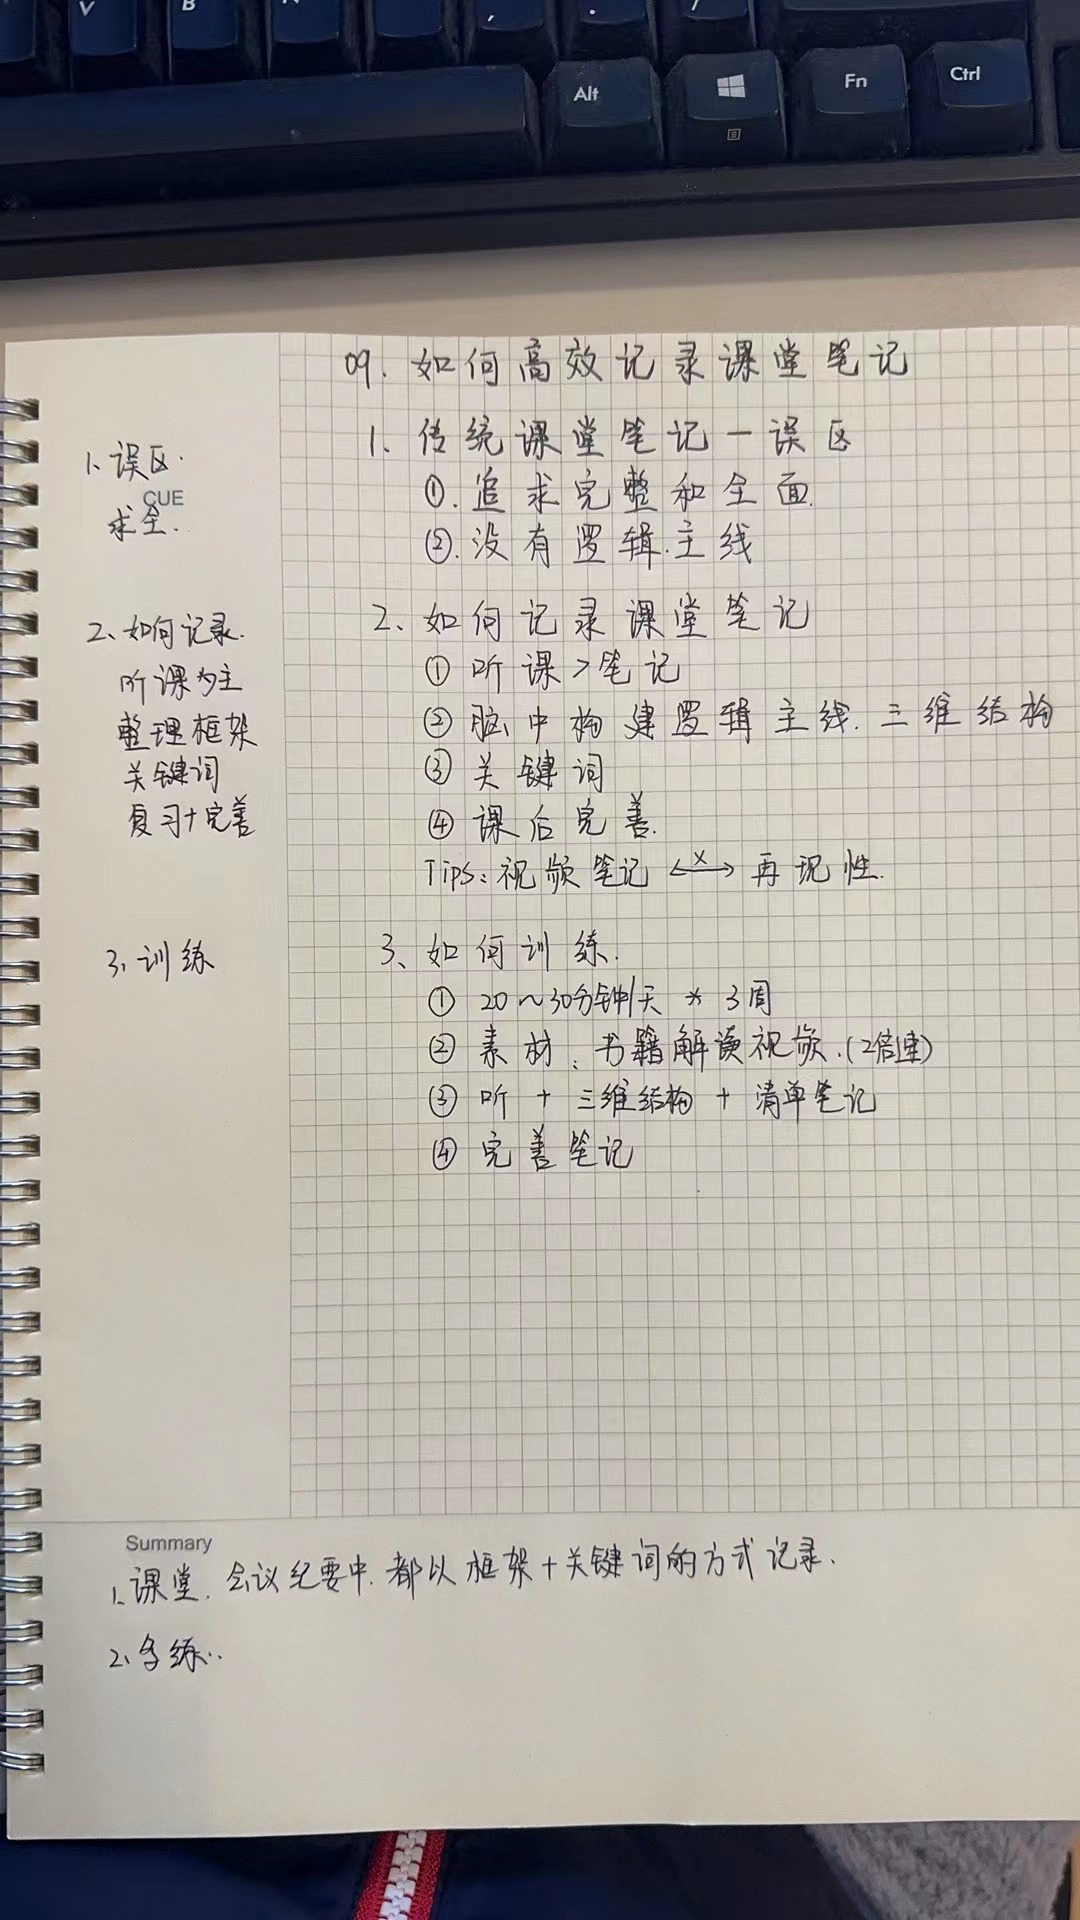 V B N , . /
Alt Fn Ctrl
09. 如何高效记录课堂笔记
1. 传统课堂笔记—误区
①. 追求完整和全面.
②. 没有逻辑.主线
2、如何记录课堂笔记
① 听课>笔记
② 脑中构建逻辑主线. 三维结构
③ 关键词
④ 课后完善.
Tips: 视频笔记 <-x-> 再现性.
3、如何训练.
① 20~30分钟/天 * 3周
② 素材: 书籍解读视频.(2倍速)
③ 听 + 三维结构 + 清单笔记
④ 完善笔记
1、误区.
CUE
求全.
2、如何记录.
听课为主
整理框架
关键词
复习+完善
3、训练
Summary
1、课堂. 会议纪要中.都以框架+关键词的方式记录.
2、多练..